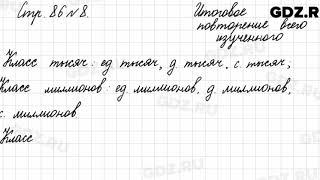 GDZ.RU
Стр. 86 № 8.
Итоговое
повторение всего
изученного
Класс тысяч: ед. тысяч, д. тысяч, с. тысяч;
Класс миллионов: ед. миллионов, д. миллионов,
с. миллионов
Класс